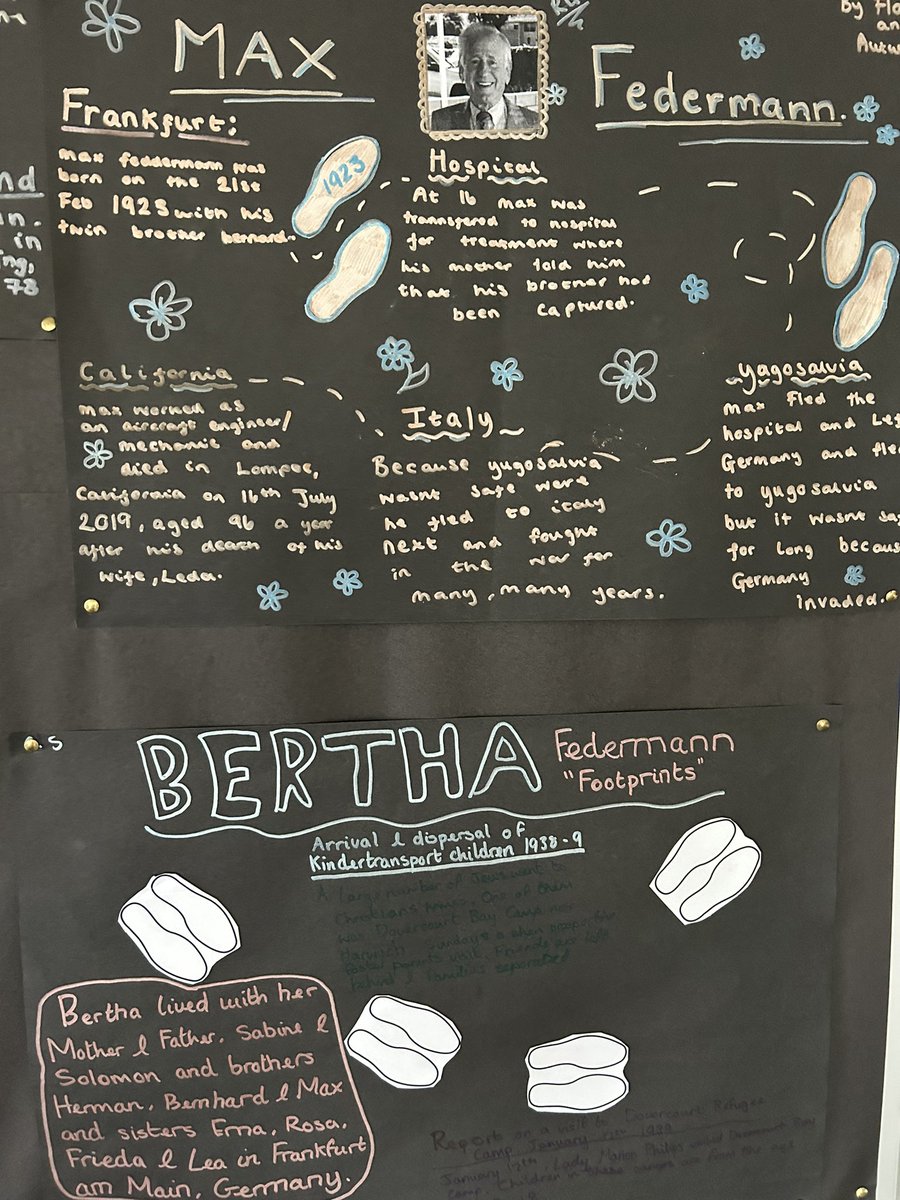 MAX
Federmann.
Frankfurt:
Max Feddermann was
born on the 21st
Feb 1923 with his
twin brother bernard.
1923
Hospital
At 16 max was
transfered to hospital
for treatment where
his mother told him
that his brother had
been captured.
yugosalvia
Max Fled the
hospital and
Germany and
to yugosalvia
but it wasnt
for long
Germany
invaded.
Italy
Because yugosalvia
wasnt safe were
he fled to italy
next and fought
in the war for
many, many years.
California
Max worked as
an aircraft engineer/
mechanic and
died in Lompec,
California on 16th July
2019, aged 96 a year
after his death of his
wife, Leda.
by
and
nd
in
ng,
78
s
BERTHA
Federmann
"Footprints"
Arrival & dispersal of
Kindertransport children 1938-9
A large number of Jews went to
Christians homes. One of them
was Dovercourt Bay Camp near
Harwich. Sundays a when prospective
foster parents visit. Friends are left
behind & families separated
Bertha lived with her
Mother & Father, Sabine &
Solomon and brothers
Herman, Bernhard & Max
and sisters Erna, Rosa,
Frieda & Lea in Frankfurt
am Main, Germany.
Report on a visit to Dovercourt Refugee
Camp January 1939
January 12th, Lady Marion Philips visited Dovercourt Bay
camp. Children in these camps are from the age